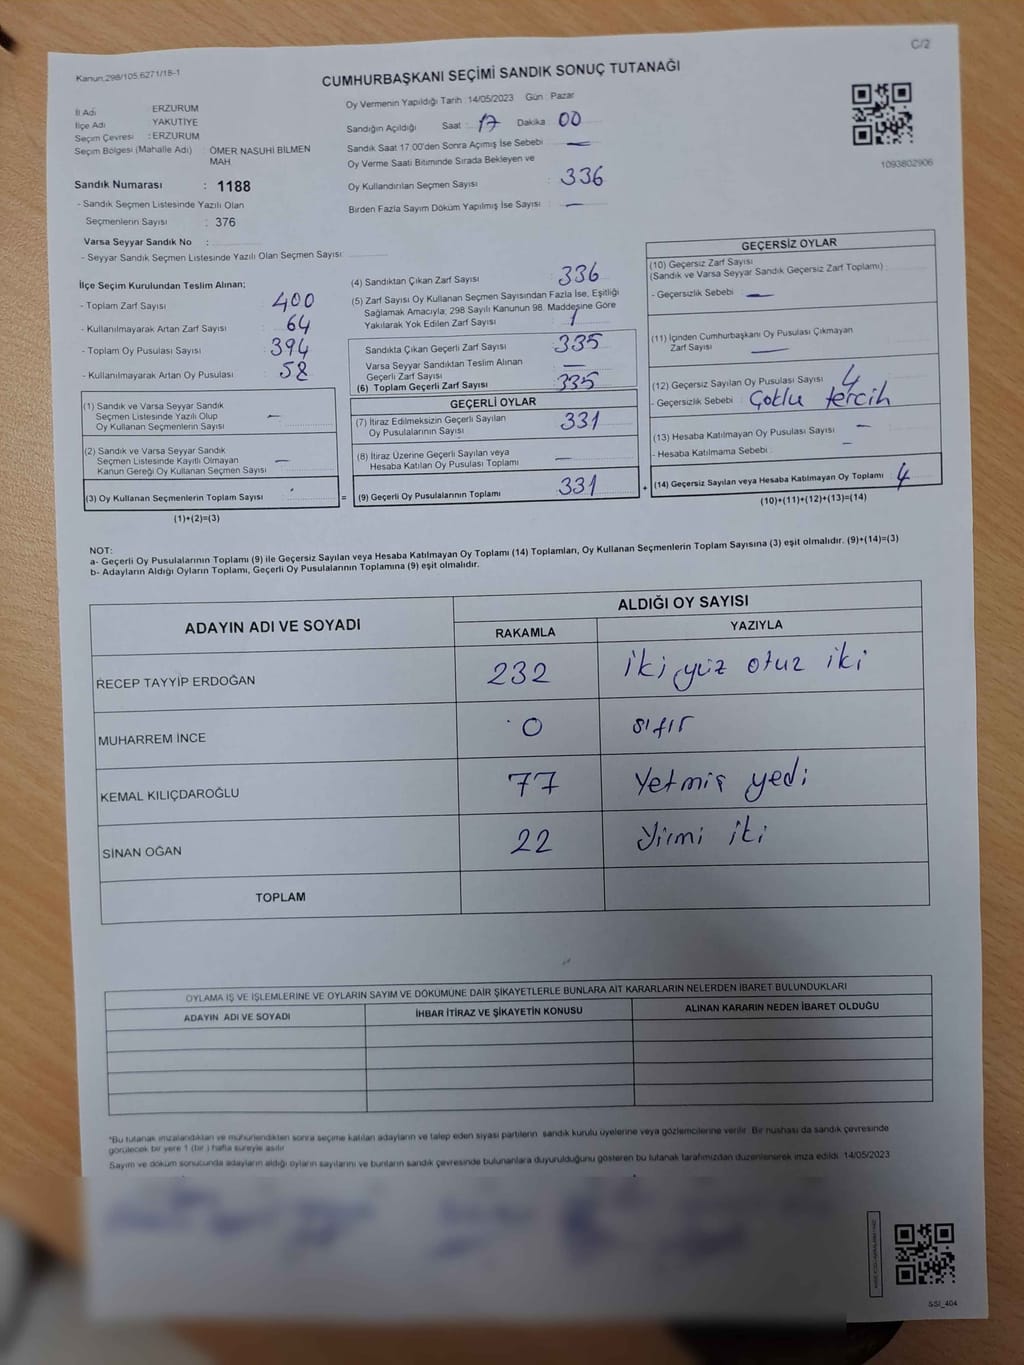 C/2
Kanun,298/105.6271/18-1
CUMHURBAŞKANI SEÇİMİ SANDIK SONUÇ TUTANAĞI
İl Adı : ERZURUM
İlçe Adı YAKUTİYE
Seçim Çevresi : ERZURUM
Seçim Bölgesi (Mahalle Adı) : ÖMER NASUHİ BİLMEN
MAH
Sandık Numarası : 1188
- Sandık Seçmen Listesinde Yazılı Olan
Seçmenlerin Sayısı : 376
Varsa Seyyar Sandık No :
- Seyyar Sandık Seçmen Listesinde Yazılı Olan Seçmen Sayısı :
Oy Vermenin Yapıldığı Tarih : 14/05/2023 Gün : Pazar
Sandığın Açıldığı Saat : 17 Dakika : 00
Sandık Saat 17.00'den Sonra Açımış İse Sebebi : —
Oy Verme Saati Bitiminde Sırada Bekleyen ve
Oy Kullandırılan Seçmen Sayısı : 336
Birden Fazla Sayım Döküm Yapılmış İse Sayısı : —
1093802906
İlçe Seçim Kurulundan Teslim Alınan;
- Toplam Zarf Sayısı : 400
- Kullanılmayarak Artan Zarf Sayısı : 64
- Toplam Oy Pusulası Sayısı : 394
- Kullanılmayarak Artan Oy Pusulası : 58
(1) Sandık ve Varsa Seyyar Sandık
Seçmen Listesinde Yazılı Olup
Oy Kullanan Seçmenlerin Sayısı : —
(2) Sandık ve Varsa Seyyar Sandık
Seçmen Listesinde Kayıtlı Olmayan
Kanun Gereği Oy Kullanan Seçmen Sayısı : —
(3) Oy Kullanan Seçmenlerin Toplam Sayısı :
(1)+(2)=(3)
(4) Sandıktan Çıkan Zarf Sayısı : 336
(5) Zarf Sayısı Oy Kullanan Seçmen Sayısından Fazla İse, Eşitliği
Sağlamak Amacıyla; 298 Sayılı Kanunun 98. Maddesine Göre
Yakılarak Yok Edilen Zarf Sayısı : 1
Sandıkta Çıkan Geçerli Zarf Sayısı : 335
Varsa Seyyar Sandıktan Teslim Alınan
Geçerli Zarf Sayısı : —
(6) Toplam Geçerli Zarf Sayısı : 335
GEÇERLİ OYLAR
(7) İtiraz Edilmeksizin Geçerli Sayılan
Oy Pusulalarının Sayısı : 331
(8) İtiraz Üzerine Geçerli Sayılan veya
Hesaba Katılan Oy Pusulası Toplamı : —
= (9) Geçerli Oy Pusulalarının Toplamı : 331
GEÇERSİZ OYLAR
(10) Geçersiz Zarf Sayısı
(Sandık ve Varsa Seyyar Sandık Geçersiz Zarf Toplamı) :
- Geçersizlik Sebebi : —
(11) İçinden Cumhurbaşkanı Oy Pusulası Çıkmayan
Zarf Sayısı : —
(12) Geçersiz Sayılan Oy Pusulası Sayısı : 4
- Geçersizlik Sebebi : Çoklu tercih
(13) Hesaba Katılmayan Oy Pusulası Sayısı : —
- Hesaba Katılmama Sebebi : —
+ (14) Geçersiz Sayılan veya Hesaba Katılmayan Oy Toplamı : 4
(10)+(11)+(12)+(13)=(14)
NOT:
a- Geçerli Oy Pusulalarının Toplamı (9) ile Geçersiz Sayılan veya Hesaba Katılmayan Oy Toplamı (14) Toplamları, Oy Kullanan Seçmenlerin Toplam Sayısına (3) eşit olmalıdır. (9)+(14)=(3)
b- Adayların Aldığı Oyların Toplamı, Geçerli Oy Pusulalarının Toplamına (9) eşit olmalıdır.
ADAYIN ADI VE SOYADI
ALDIĞI OY SAYISI
RAKAMLA YAZIYLA
RECEP TAYYİP ERDOĞAN 232 iki yüz otuz iki
MUHARREM İNCE 0 sıfır
KEMAL KILIÇDAROĞLU 77 Yetmiş yedi
SİNAN OĞAN 22 Yirmi iki
TOPLAM
OYLAMA İŞ VE İŞLEMLERİNE VE OYLARIN SAYIM VE DÖKÜMÜNE DAİR ŞİKAYETLERLE BUNLARA AİT KARARLARIN NELERDEN İBARET BULUNDUKLARI
ADAYIN ADI VE SOYADI İHBAR İTİRAZ VE ŞİKAYETİN KONUSU ALINAN KARARIN NEDEN İBARET OLDUĞU
*Bu tutanak imzalandıktan ve mühürlendikten sonra seçime katılan adayların ve talep eden siyasi partilerin sandık kurulu üyelerine veya gözlemcilerine verilir. Bir nüshası da sandık çevresinde
görülecek bir yere 1 (bir ) hafta süreyle asılır
Sayım ve döküm sonucunda adayların aldığı oyların sayılarını ve bunların sandık çevresinde bulunanlara duyurulduğunu gösteren bu tutanak tarafımızdan düzenlenerek imza edildi. 14/05/2023
SSI_404